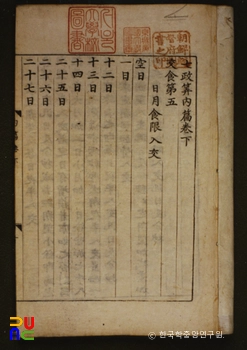 七政算內篇卷下
交食第五
日月食限入交
空日
一日
十二日
十三日
十四日
二十五日
二十六日
二十七日
© 한국학중앙연구원